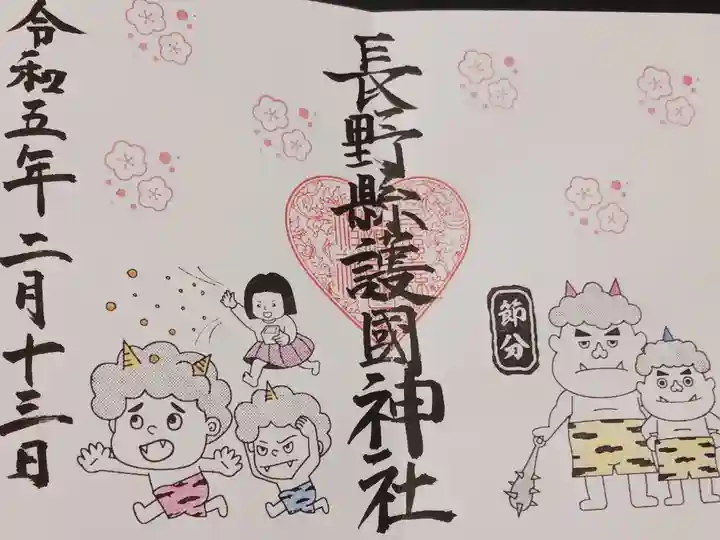 長野縣護國神社
節分
令和五年二月十三日